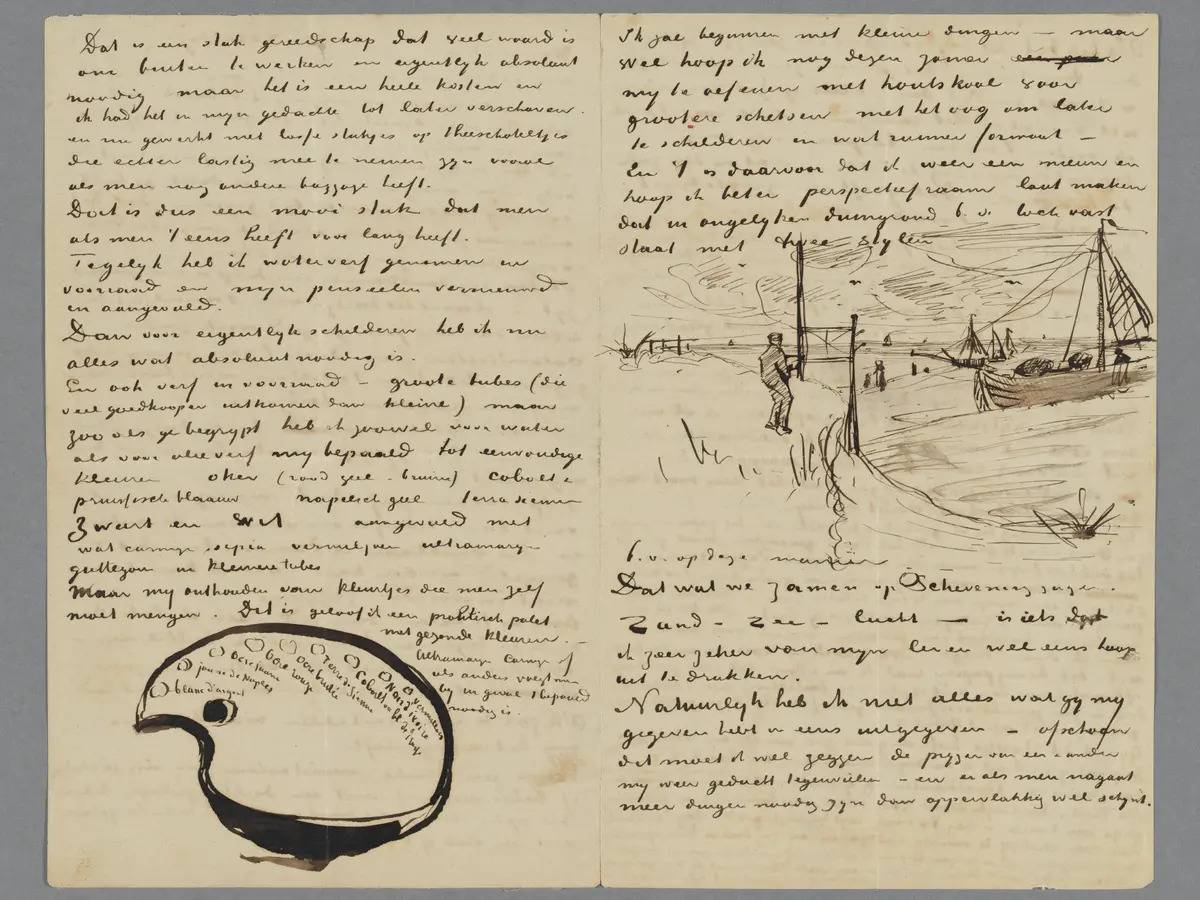 Dat is een stuk gereedschap dat veel waard is
om buiten te werken en eigentlyk absoluut
noodig maar het is een heele kosten en
ik had het in myn gedachte tot later verschoven.
en nu gewerkt met losse stukjes op theeschoteltjes
die echter lastig mee te nemen zyn vooral
als men nog andere baggage heeft.
Dat is dus een mooi stuk dat men
als men 't eens heeft voor lang heeft.
Tegelyk heb ik waterverf genomen in
voorraad en myn penseelen vernieuwd
en aangevuld.
Dan voor eigentlyk schilderen heb ik nu
alles wat absoluut noodig is.
En ook verf in voorraad – groote tubes (die
veel goedkooper uitkomen dan kleine) maar
zoo als ge begrypt heb ik zoowel voor water
als voor olieverf my bepaald tot eenvoudige
kleuren oker (rood geel-bruin) cobolt &
pruissisch blaauw napelsch geel terra sienna
zwart en wit aangevuld met
wat carmyn sepia vermiljoen ultramaryn
guttegom in kleinere tubes
Maar my onthouden van kleurtjes die men zelf
moet mengen. Dit is geloof ik een praktisch palet
met gezonde kleuren. –
Ultramaryn Carmyn of
als anders voegt men
by in geval 't bepaald
noodig is.
blanc d'argent
jaune de Naples
ocre jaune
Ocre rouge
Ocre brulée
Terre de Sienne
Cobolt ou bl. de Prusse
Noir d'ivoire
Vermillon
Ik zal beginnen met kleine dingen – maar
wel hoop ik nog dezen zomer
my te oefenen met houtskool voor
grootere schetsen met het oog om later
te schilderen in wat ruimer formaat –
En 't is daarvoor dat ik weer een nieuw en
hoop ik beter perspectiefraam laat maken
dat in ongelyken duingrond b.v. toch vast
staat met twee stylen
b.v. op deze manier
Dat wat we zamen op Schevening zagen.
Zand – Zee – lucht – is iets dat
ik zeer zeker van myn leven wel eens hoop
uit te drukken.
Natuurlyk heb ik niet alles wat gy my
gegeven hebt in eens uitgegeven – ofschoon
dit moet ik wel zeggen de pryzen van een & ander
my weer geducht tegenvielen – en er als men nagaat
meer dingen noodig zyn dan oppervlakkig wel schynt.